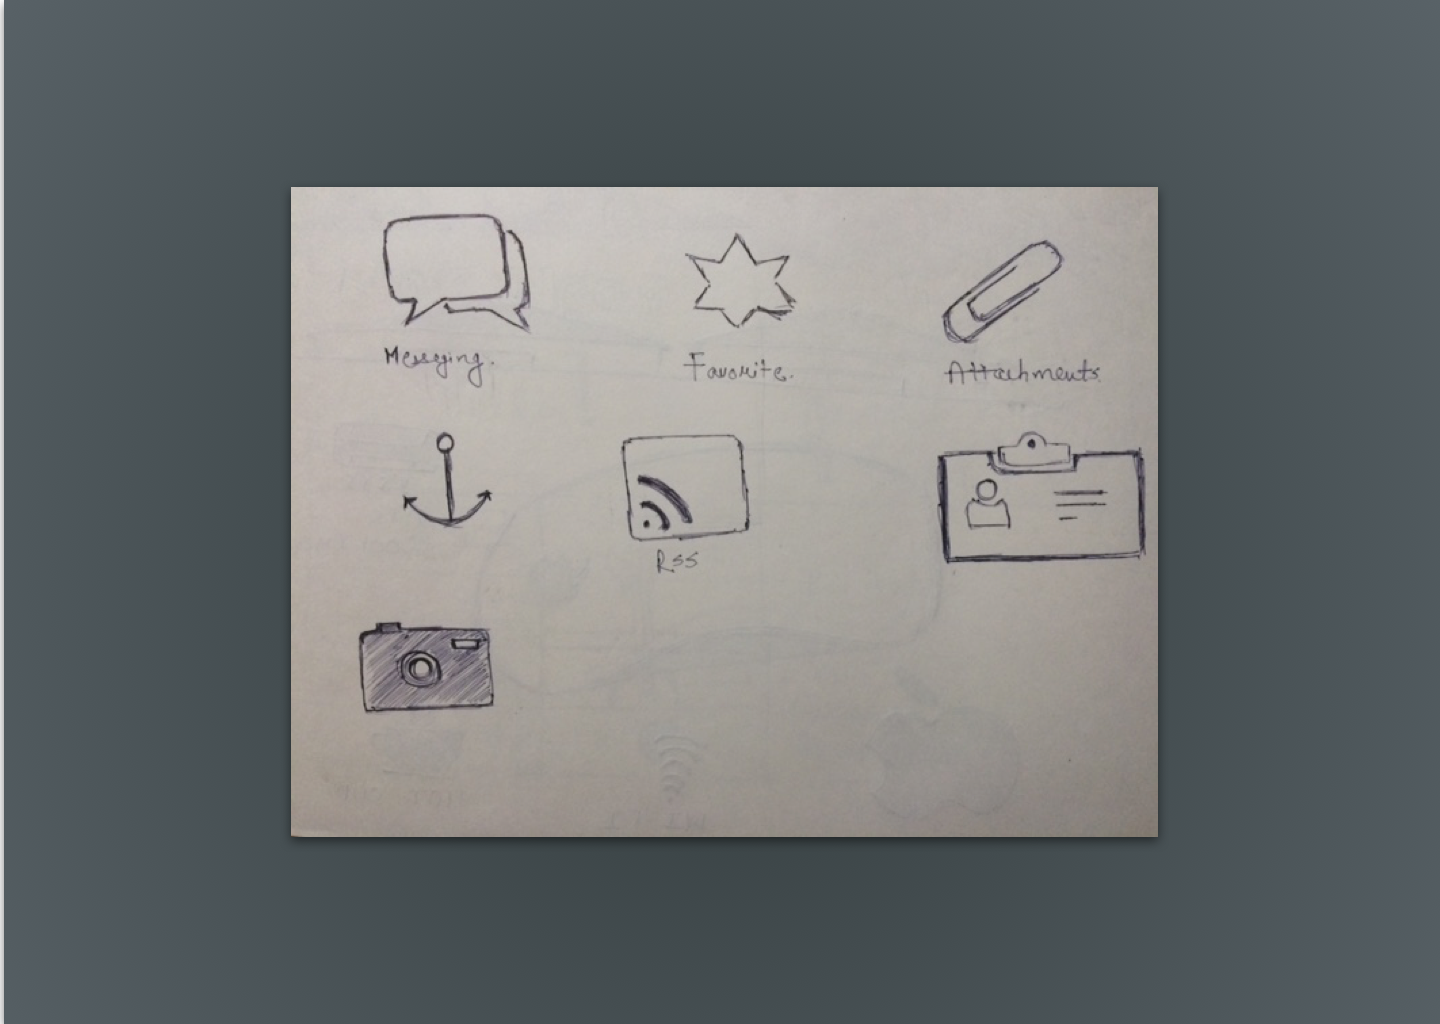 Messging.
Favorite.
Attachments
RSS